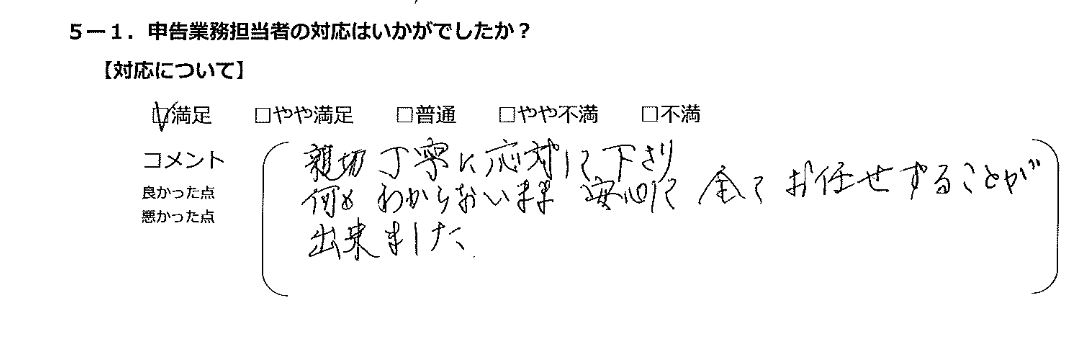 5－1．申告業務担当者の対応はいかがでしたか？
【対応について】
☑満足　□やや満足　□普通　□やや不満　□不満
コメント
良かった点
悪かった点
親切丁寧に応対して下さり
何もわからないまま 安心して 全て お任せすることが
出来ました